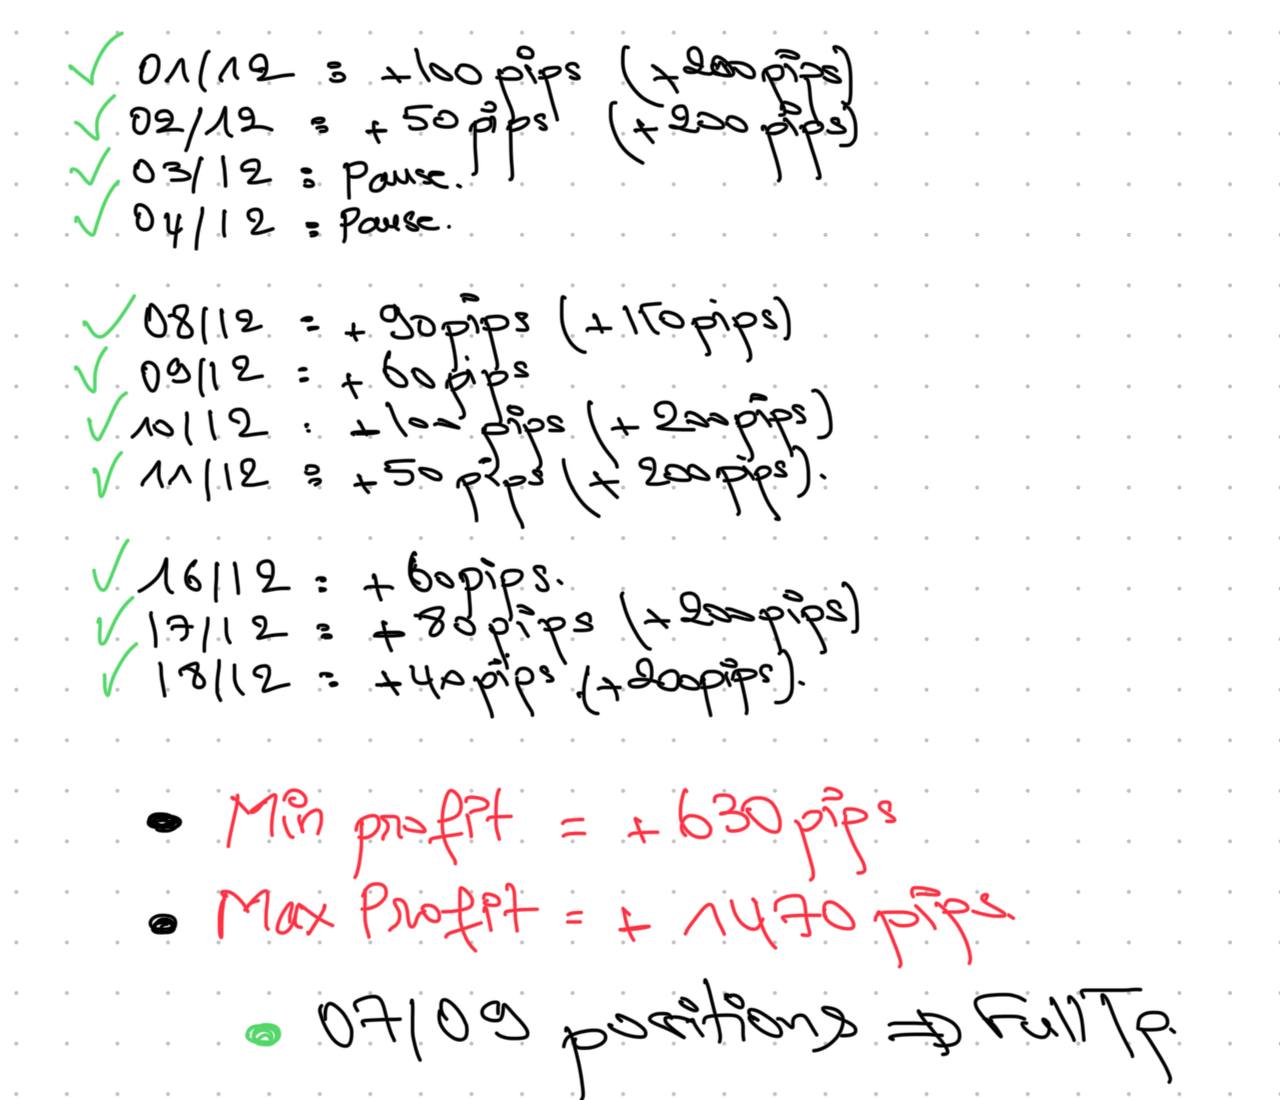 01/12 : +100 pips (+200 pips)
02/12 : +50 pips (+200 pips)
03/12 : Pause.
04/12 : Pause.
08/12 : +90 pips (+150 pips)
09/12 : +60 pips
10/12 : +100 pips (+200 pips)
11/12 : +50 pips (+200 pips).
16/12 : +60 pips.
17/12 : +80 pips (+200 pips)
18/12 : +40 pips (+200 pips).
• Min profit = +630 pips
• Max Profit = +1470 pips.
• 07/09 positions ⇒ Full Tp.